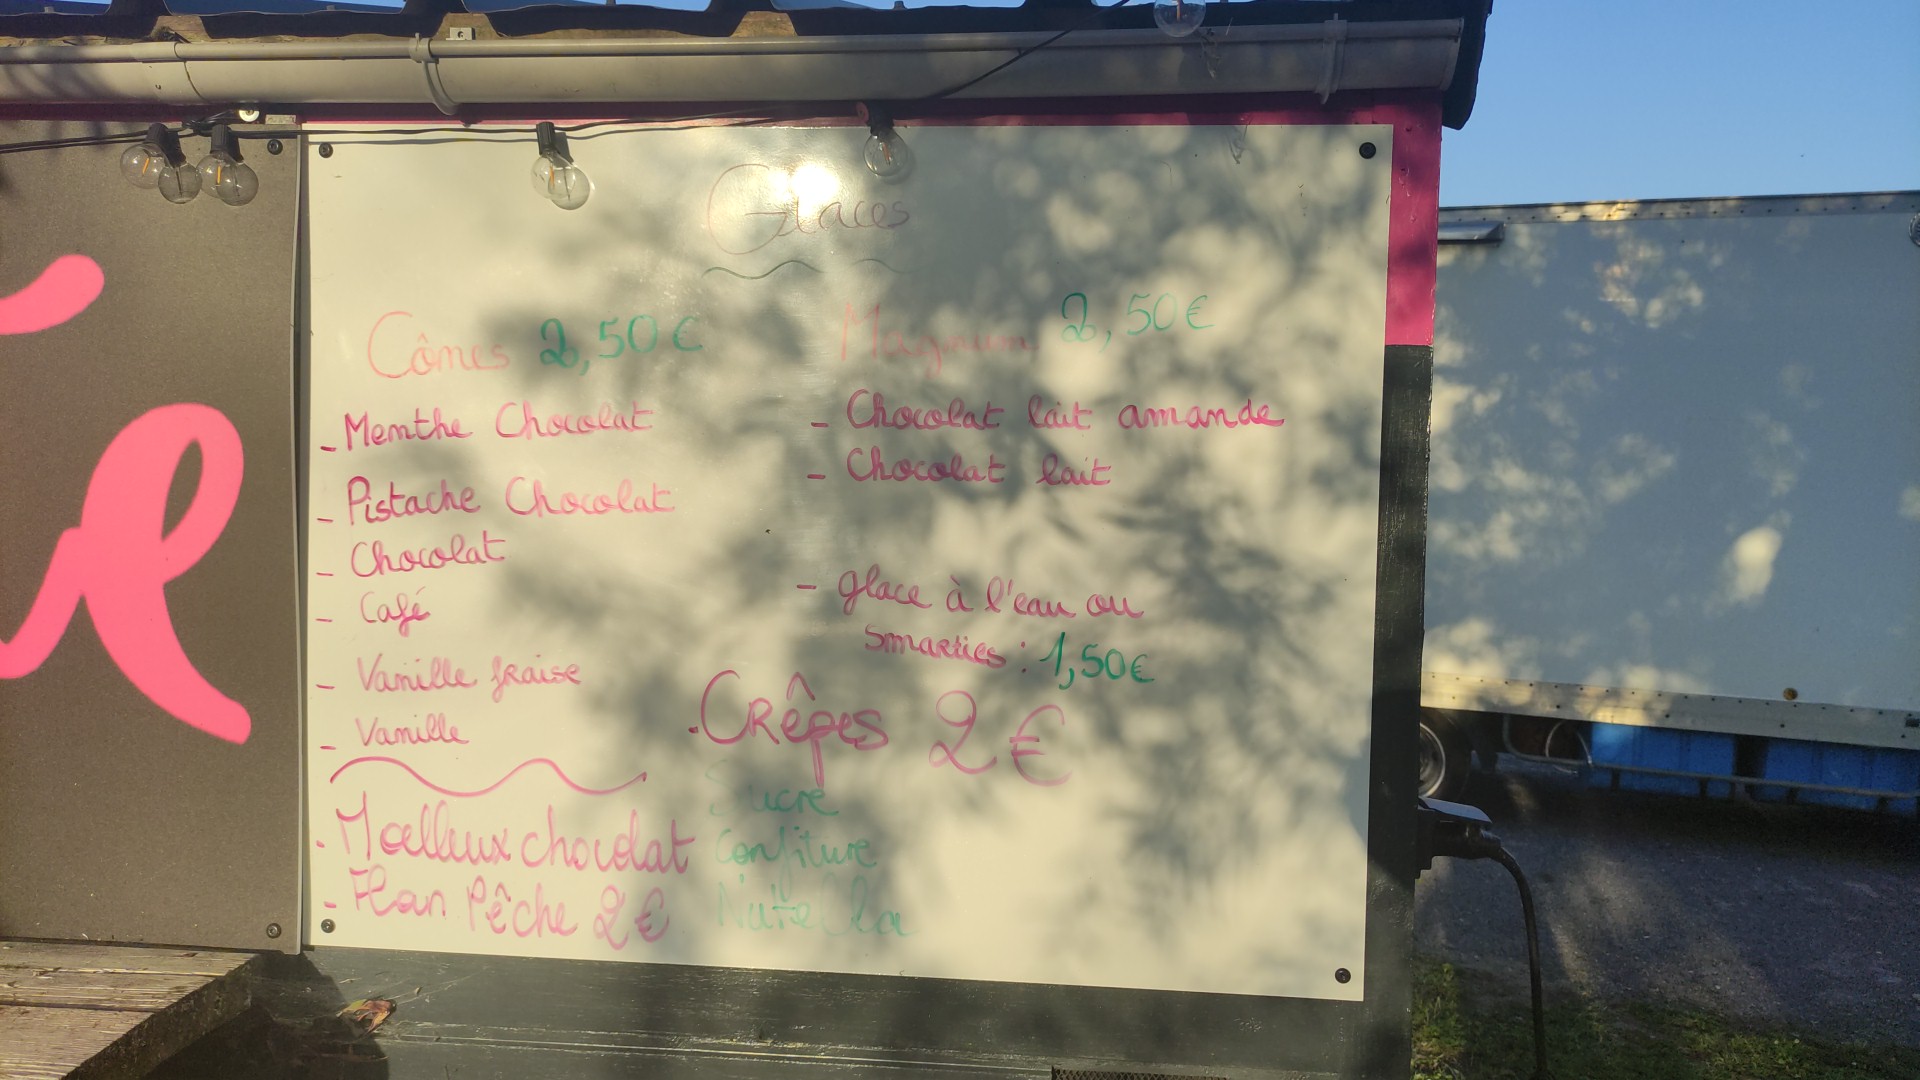 Glaces
Cônes 2,50€
- Menthe Chocolat
- Pistache Chocolat
- Chocolat
- Café
- Vanille fraise
- Vanille
Magnum 2,50€
- Chocolat lait amande
- Chocolat lait
- glace à l'eau ou
smarties : 1,50€
. Moelleux chocolat
- Flan Pêche 2€
. Crêpes 2€
Sucre
Confiture
Nutella